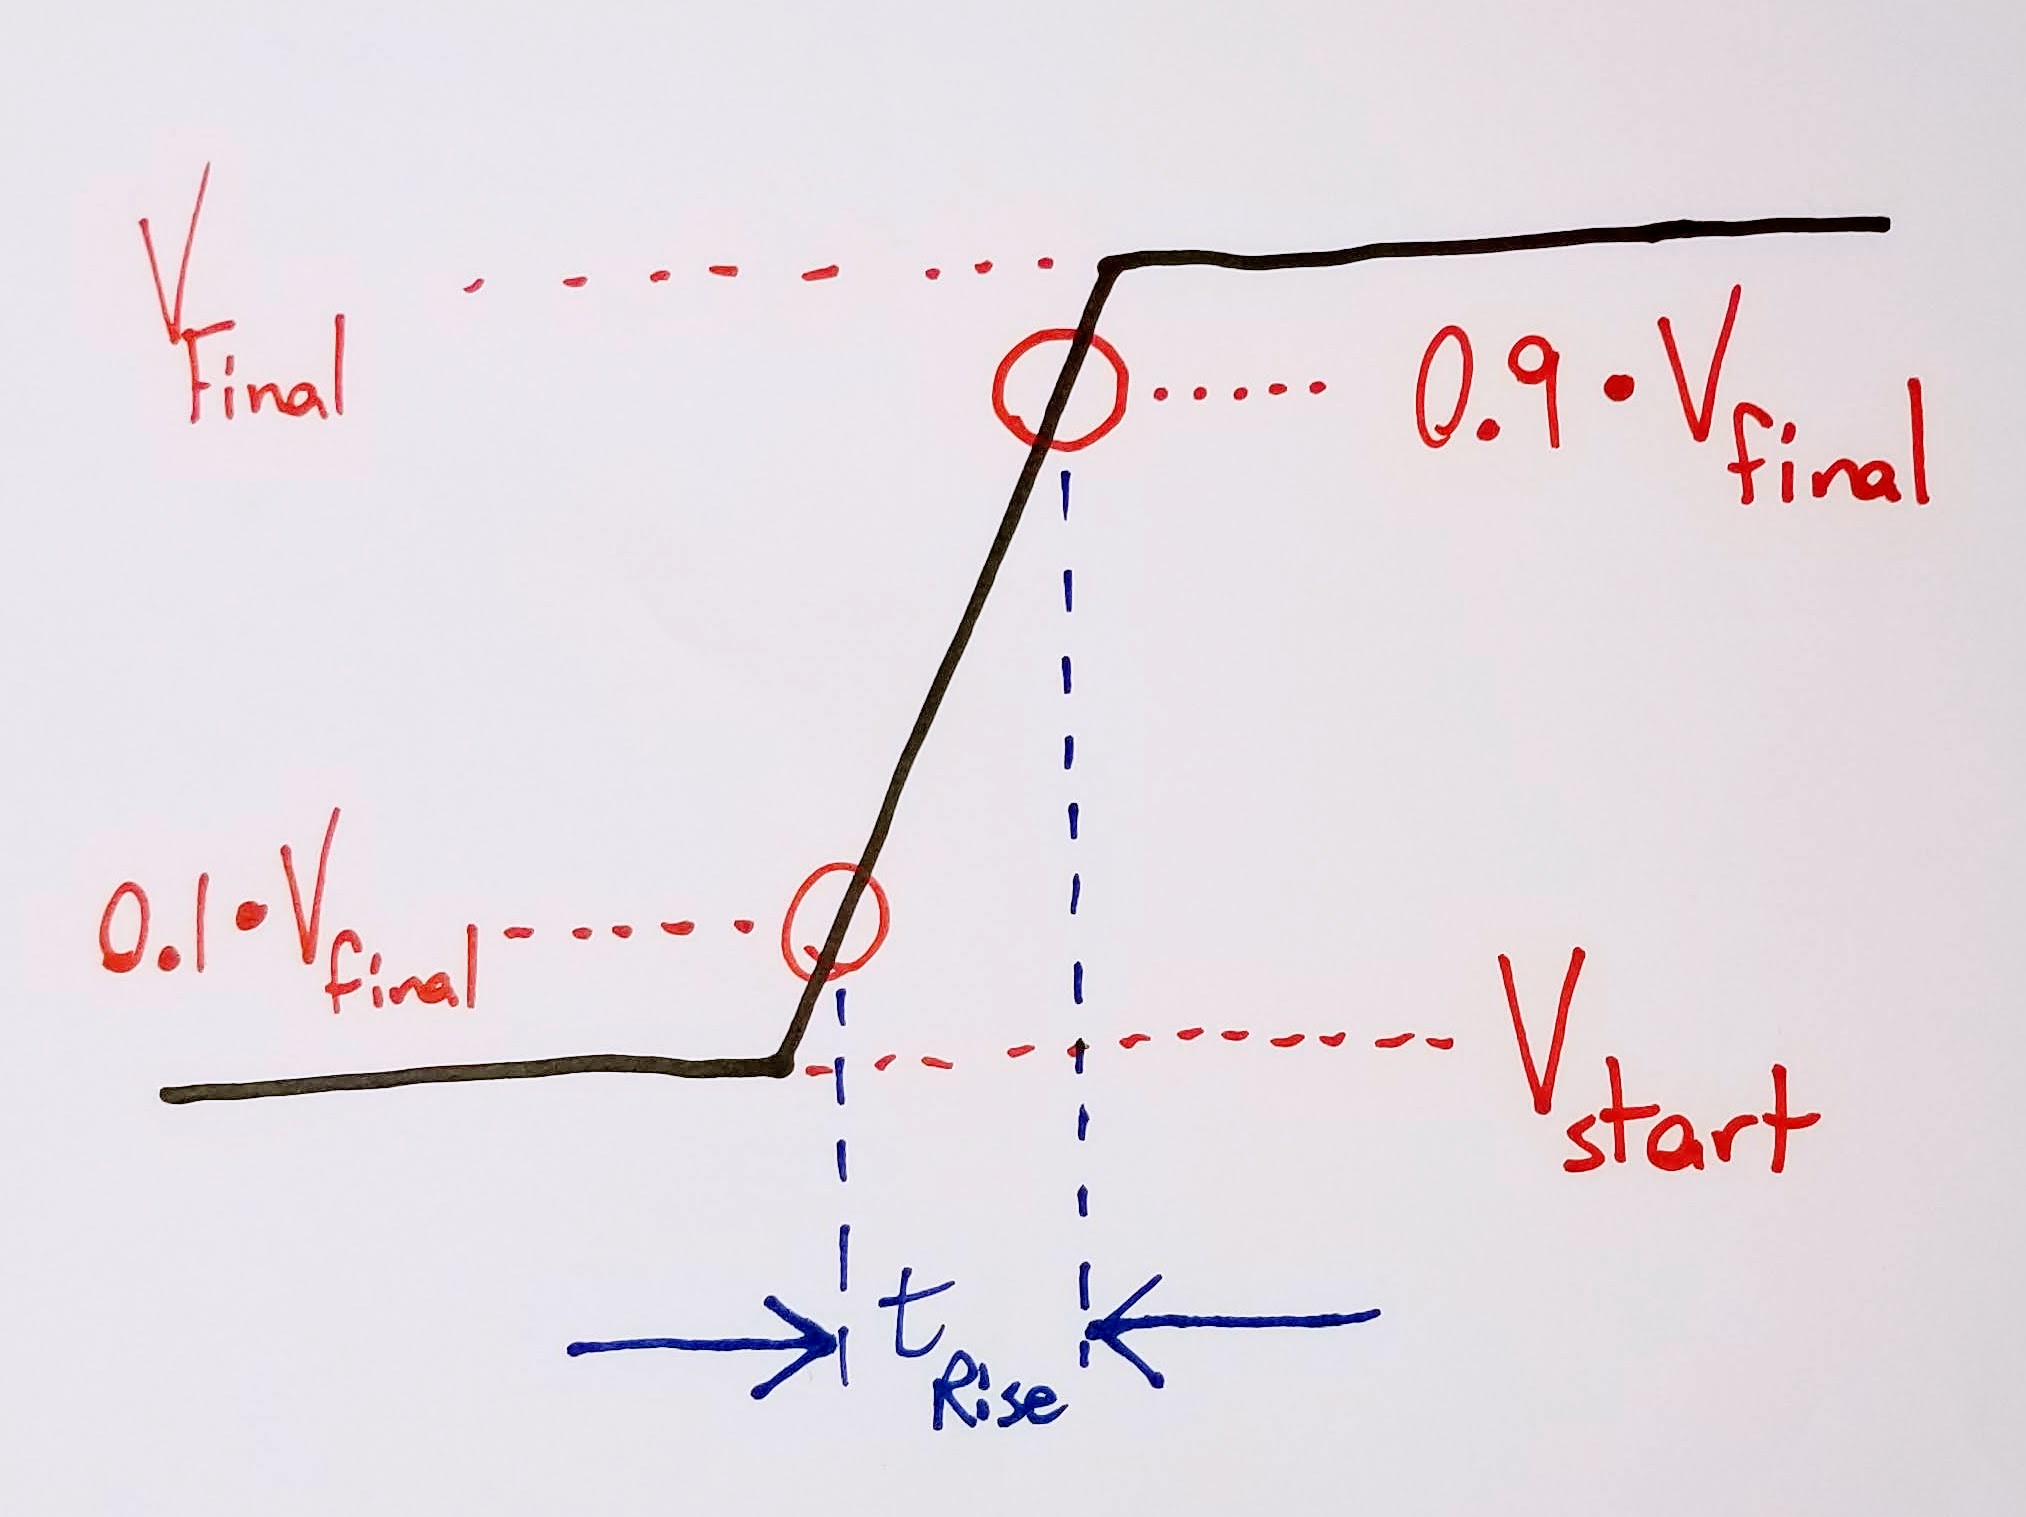 V Final
0.9 • V final
0.1 • V final
V start
t Rise